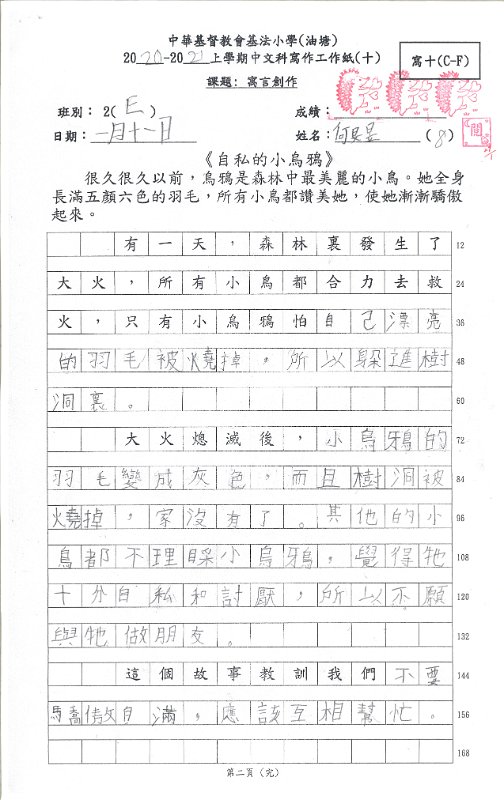 中華基督教會基法小學(油塘)
2020-2021上學期中文科寫作工作紙(十)
寫十(C-F)
課題：寓言創作
班別： 2(E)
成績：
日期：一月十一日
姓名：何 (8)
《自私的小烏鴉》
很久很久以前，烏鴉是森林中最美麗的小鳥。她全身
長滿五顏六色的羽毛，所有小鳥都讚美她，使她漸漸驕傲
起來。
有一天，森林裏發生了 12
大火，所有小鳥都合力去救 24
火，只有小烏鴉怕自己漂亮 36
的羽毛被燒掉，所以躲進樹 48
洞裏。 60
大火熄滅後，小烏鴉的 72
羽毛變成灰色，而且樹洞被 84
燒掉，家沒有了。其他的小 96
鳥都不理睬小烏鴉，覺得牠 108
十分自私和討厭，所以不願 120
與牠做朋友。 132
這個故事教訓我們不要 144
驕傲自滿，應該互相幫忙。 156
168
第二頁（完）